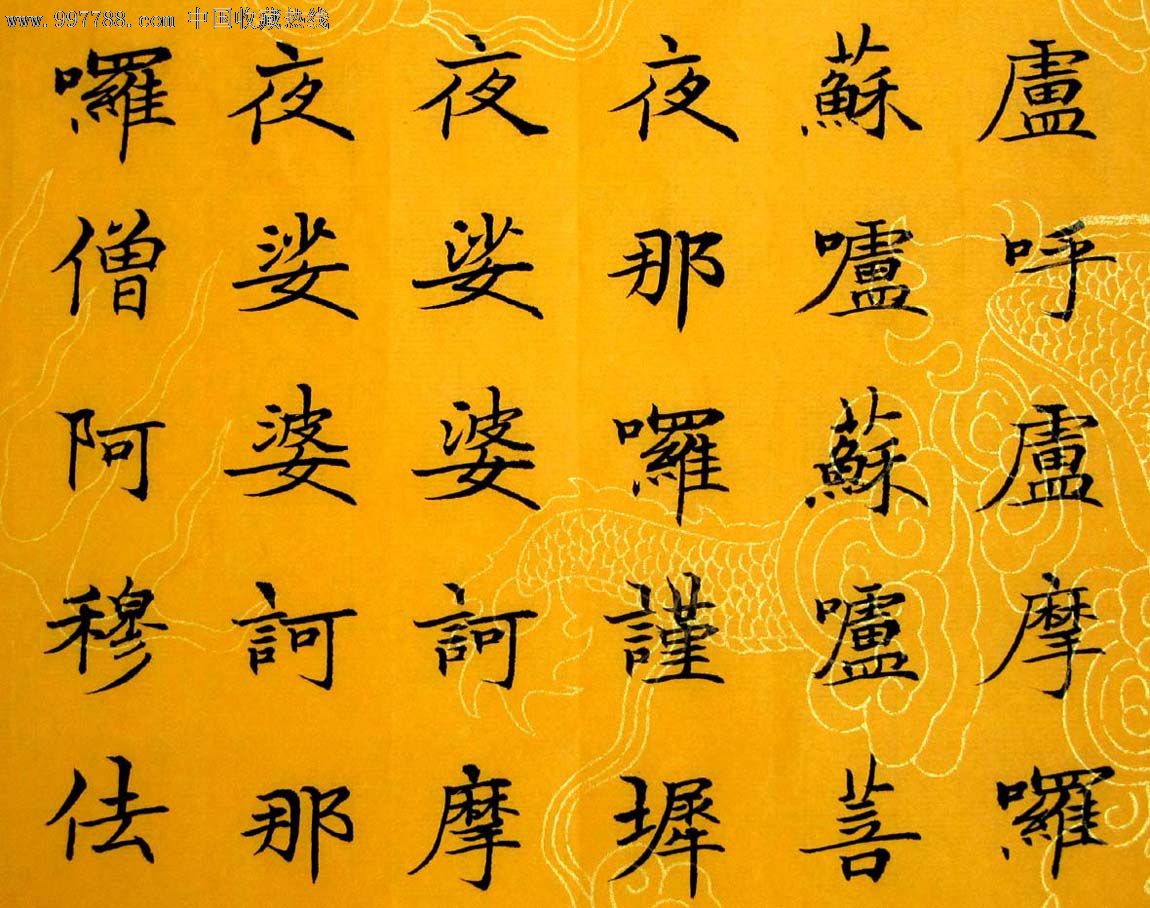 www.997788.com 中国收藏热线
盧呼盧摩囉
蘇嚧蘇嚧菩
夜那囉謹墀
夜娑婆訶摩
夜娑婆訶那
囉僧阿穆佉